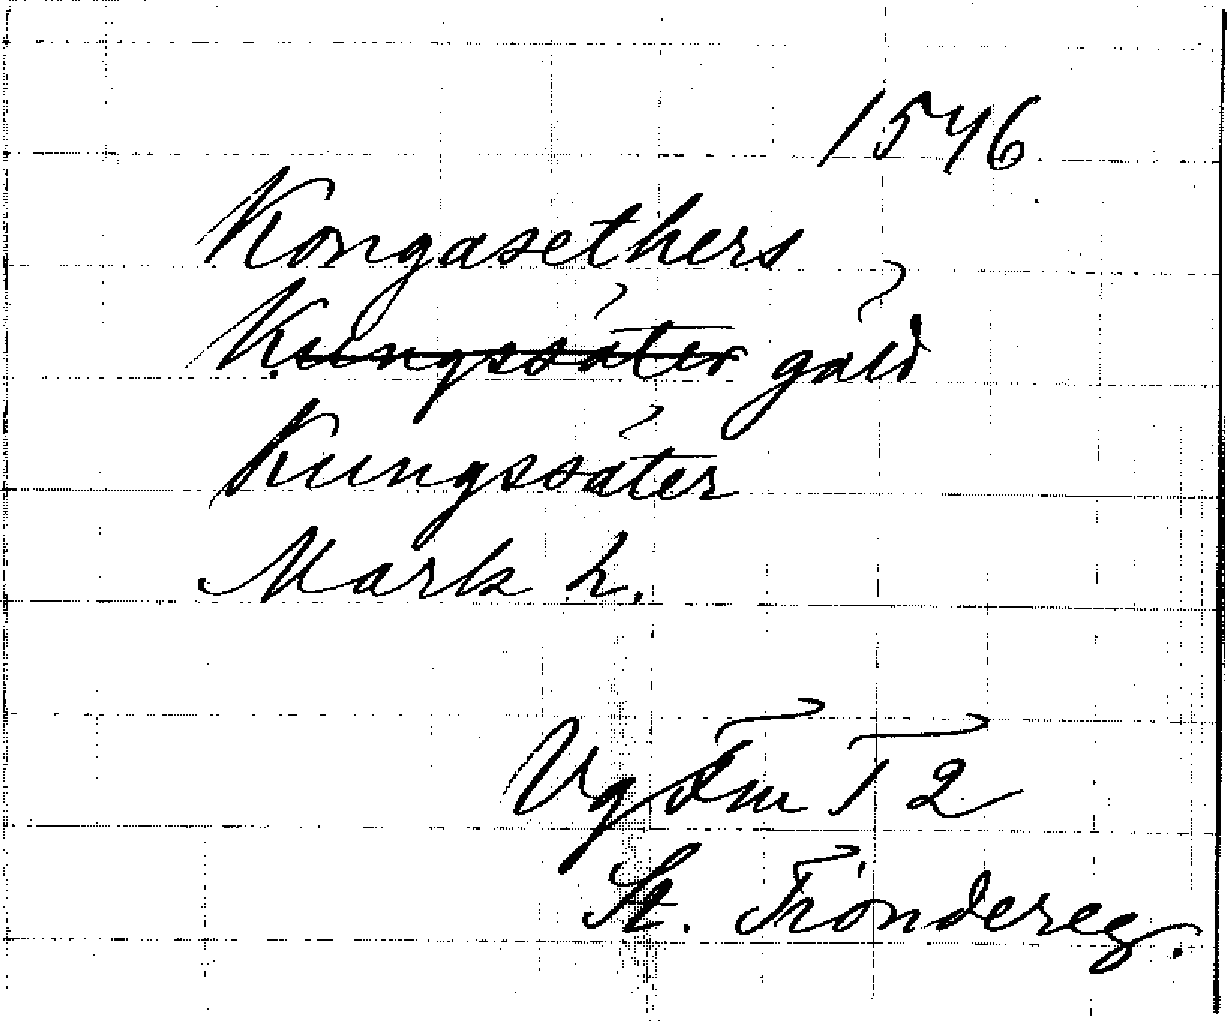 1546
Kongasethers
Kungssäter gäld
Kungssäter
Mark h.
Vg T 2
St. Tiondereg.